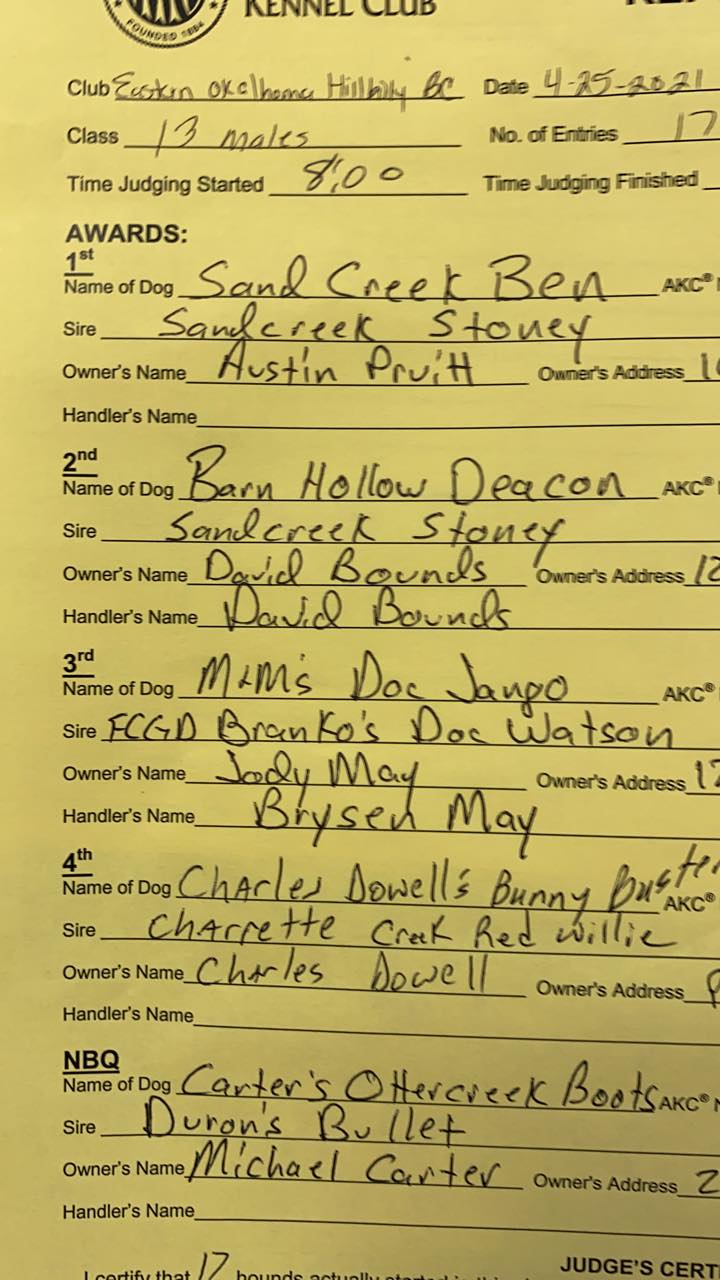 FOUNDED 1884
KENNEL CLUB
Club Eastern Okelhoma Hillbilly BC Date 4-25-2021
Class 13 males No. of Entries 17
Time Judging Started 8:00 Time Judging Finished
AWARDS:
1st
Name of Dog Sand Creek Ben AKC®
Sire Sandcreek Stoney
Owner's Name Austin Pruitt Owner's Address
Handler's Name
2nd
Name of Dog Barn Hollow Deacon AKC®
Sire Sandcreek Stoney
Owner's Name David Bounds Owner's Address 12
Handler's Name David Bounds
3rd
Name of Dog M&M's Doc Jango AKC®
Sire FCGD Branko's Doc Watson
Owner's Name Jody May Owner's Address
Handler's Name Brysen May
4th
Name of Dog Charles Dowell's Bunny Buster AKC®
Sire Charrette Creek Red Willie
Owner's Name Charles Dowell Owner's Address
Handler's Name
NBQ
Name of Dog Carter's Ottercreek Boots AKC®
Sire Duron's Bullet
Owner's Name Michael Carter Owner's Address 2
Handler's Name
JUDGE'S CERT
I certify that 17 hounds actually started in this